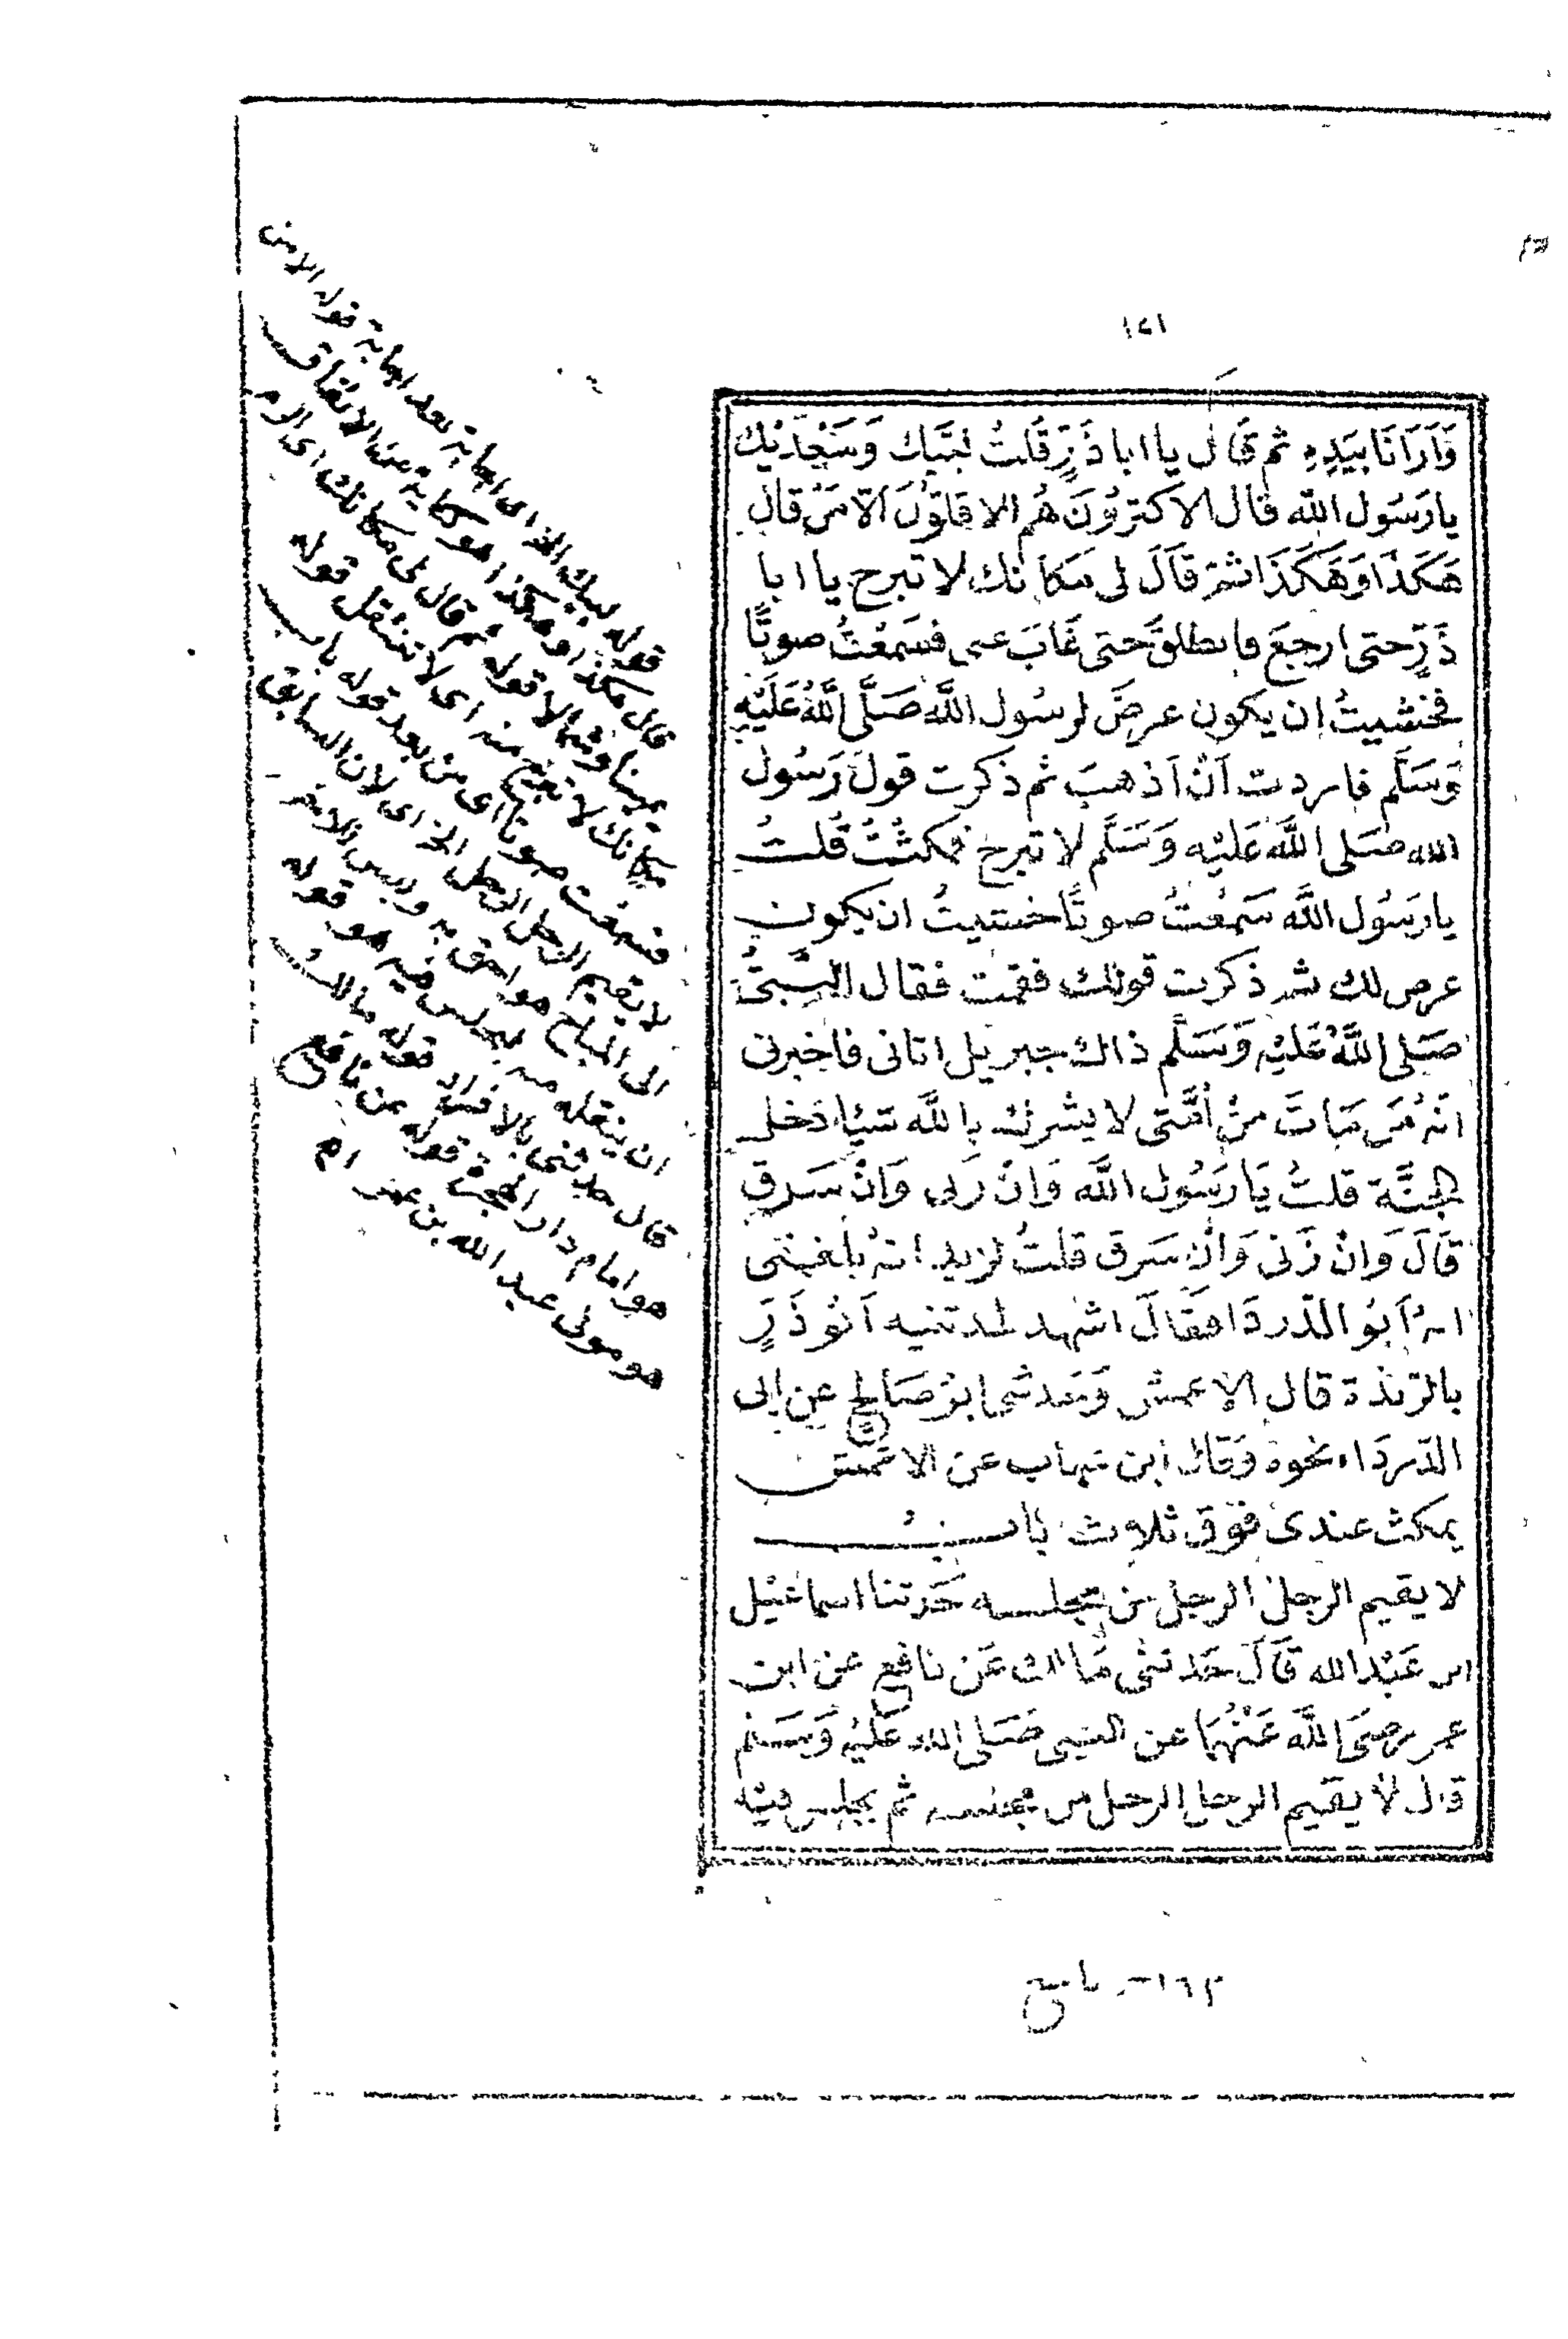 ١٤١
وَاَرَانَا بيَدِهِ ثم قال يا ابا ذَرٍّ قُلتُ لبَّيك وَسَعْدَيْك
يا رَسُول الله قال الاكثرُونَ هُم الاقلوّنَ الّا مَنْ قال
هَكَذا وَهَكَذَا ثمّ قَالَ لى مَكَانك لا تبرح يا ابا
ذَرٍّ حتى ارجعَ فانطلقَ حتى غَابَ عنى فسَمعْتُ صوتًا
فخشيتُ ان يكون عرضَ لرسُول اللَّه صَلَّى اللَّهُ عَلَيْهِ
وَسَلَّم فاردت اَنْ اَذهبَ ثم ذكرت قولَ رَسُول
الله صَلى اللَّه عَليْه وَسَلَّم لا تبرح فمكثْتُ قُلتُ
يا رَسُول اللَّه سَمعْتُ صوتًا خشيتُ ان يكون
عرض لك ثم ذكرت قولك فقمت فقال النَّبىُّ
صَلى اللَّهُ عَليْه وَسَلَّم ذاك جبريل اتانى فاخبرنى
انهُ مَن مَاتَ منْ اُمَّتى لا يشرك باللَّه شيا دخل
الجنَّة قلتُ يَا رَسُول اللَّه وَانْ زنى وَانْ سَرق
قَالَ وَانْ زَنى وَانْ سَرق قلتُ لزيد انهُ بلغنى
انهُ اَبُو الدّردَا فقَالَ اشهد لحدثنيه اَبُو ذَرٍّ
بالرّبذة قال الاعمش وَحَدثنى ابوُ صَالح عن ابى
الدّردَاء نحوهُ وَقال ابن شهاب عن الاعمش
يمكث عندى فوق ثلاث بابُ
لا يقيم الرجل الرجل من مجلسه حَدّثنا اسماعيل
ابن عَبْد الله قَالَ حَدثنى مَالك عَن نافع عن ابن
عمر رضىَ اللَّه عَنْهُمَا عن النبى صَلى الله عَليْه وَسَلم
قال لا يقيم الرجل الرجل من مجلسه ثم يجلس فيْه
قوله لبيك الخ اى اجابة بعد اجابة قوله الا من
قال هكذا وهكذا هو كناية عن الانفاق
يمينا وشمالا قوله ثم قال لى مكانك اى الزم
مكانك لا تبرح منه اى لا تنتقل قوله
فسمعت صوتا اى من بعد قوله باب
لا يقيم الرجل الرجل الخ اى لان السابق
الى المباح هو احق به وليس للاخر
ان ينقله منه ليجلس فيه هو قوله
قال حدثنى بالافراد قوله مالك
هو امام دار الهجرة قوله عن نافع
هو مولى عبد الله بن عمر ام